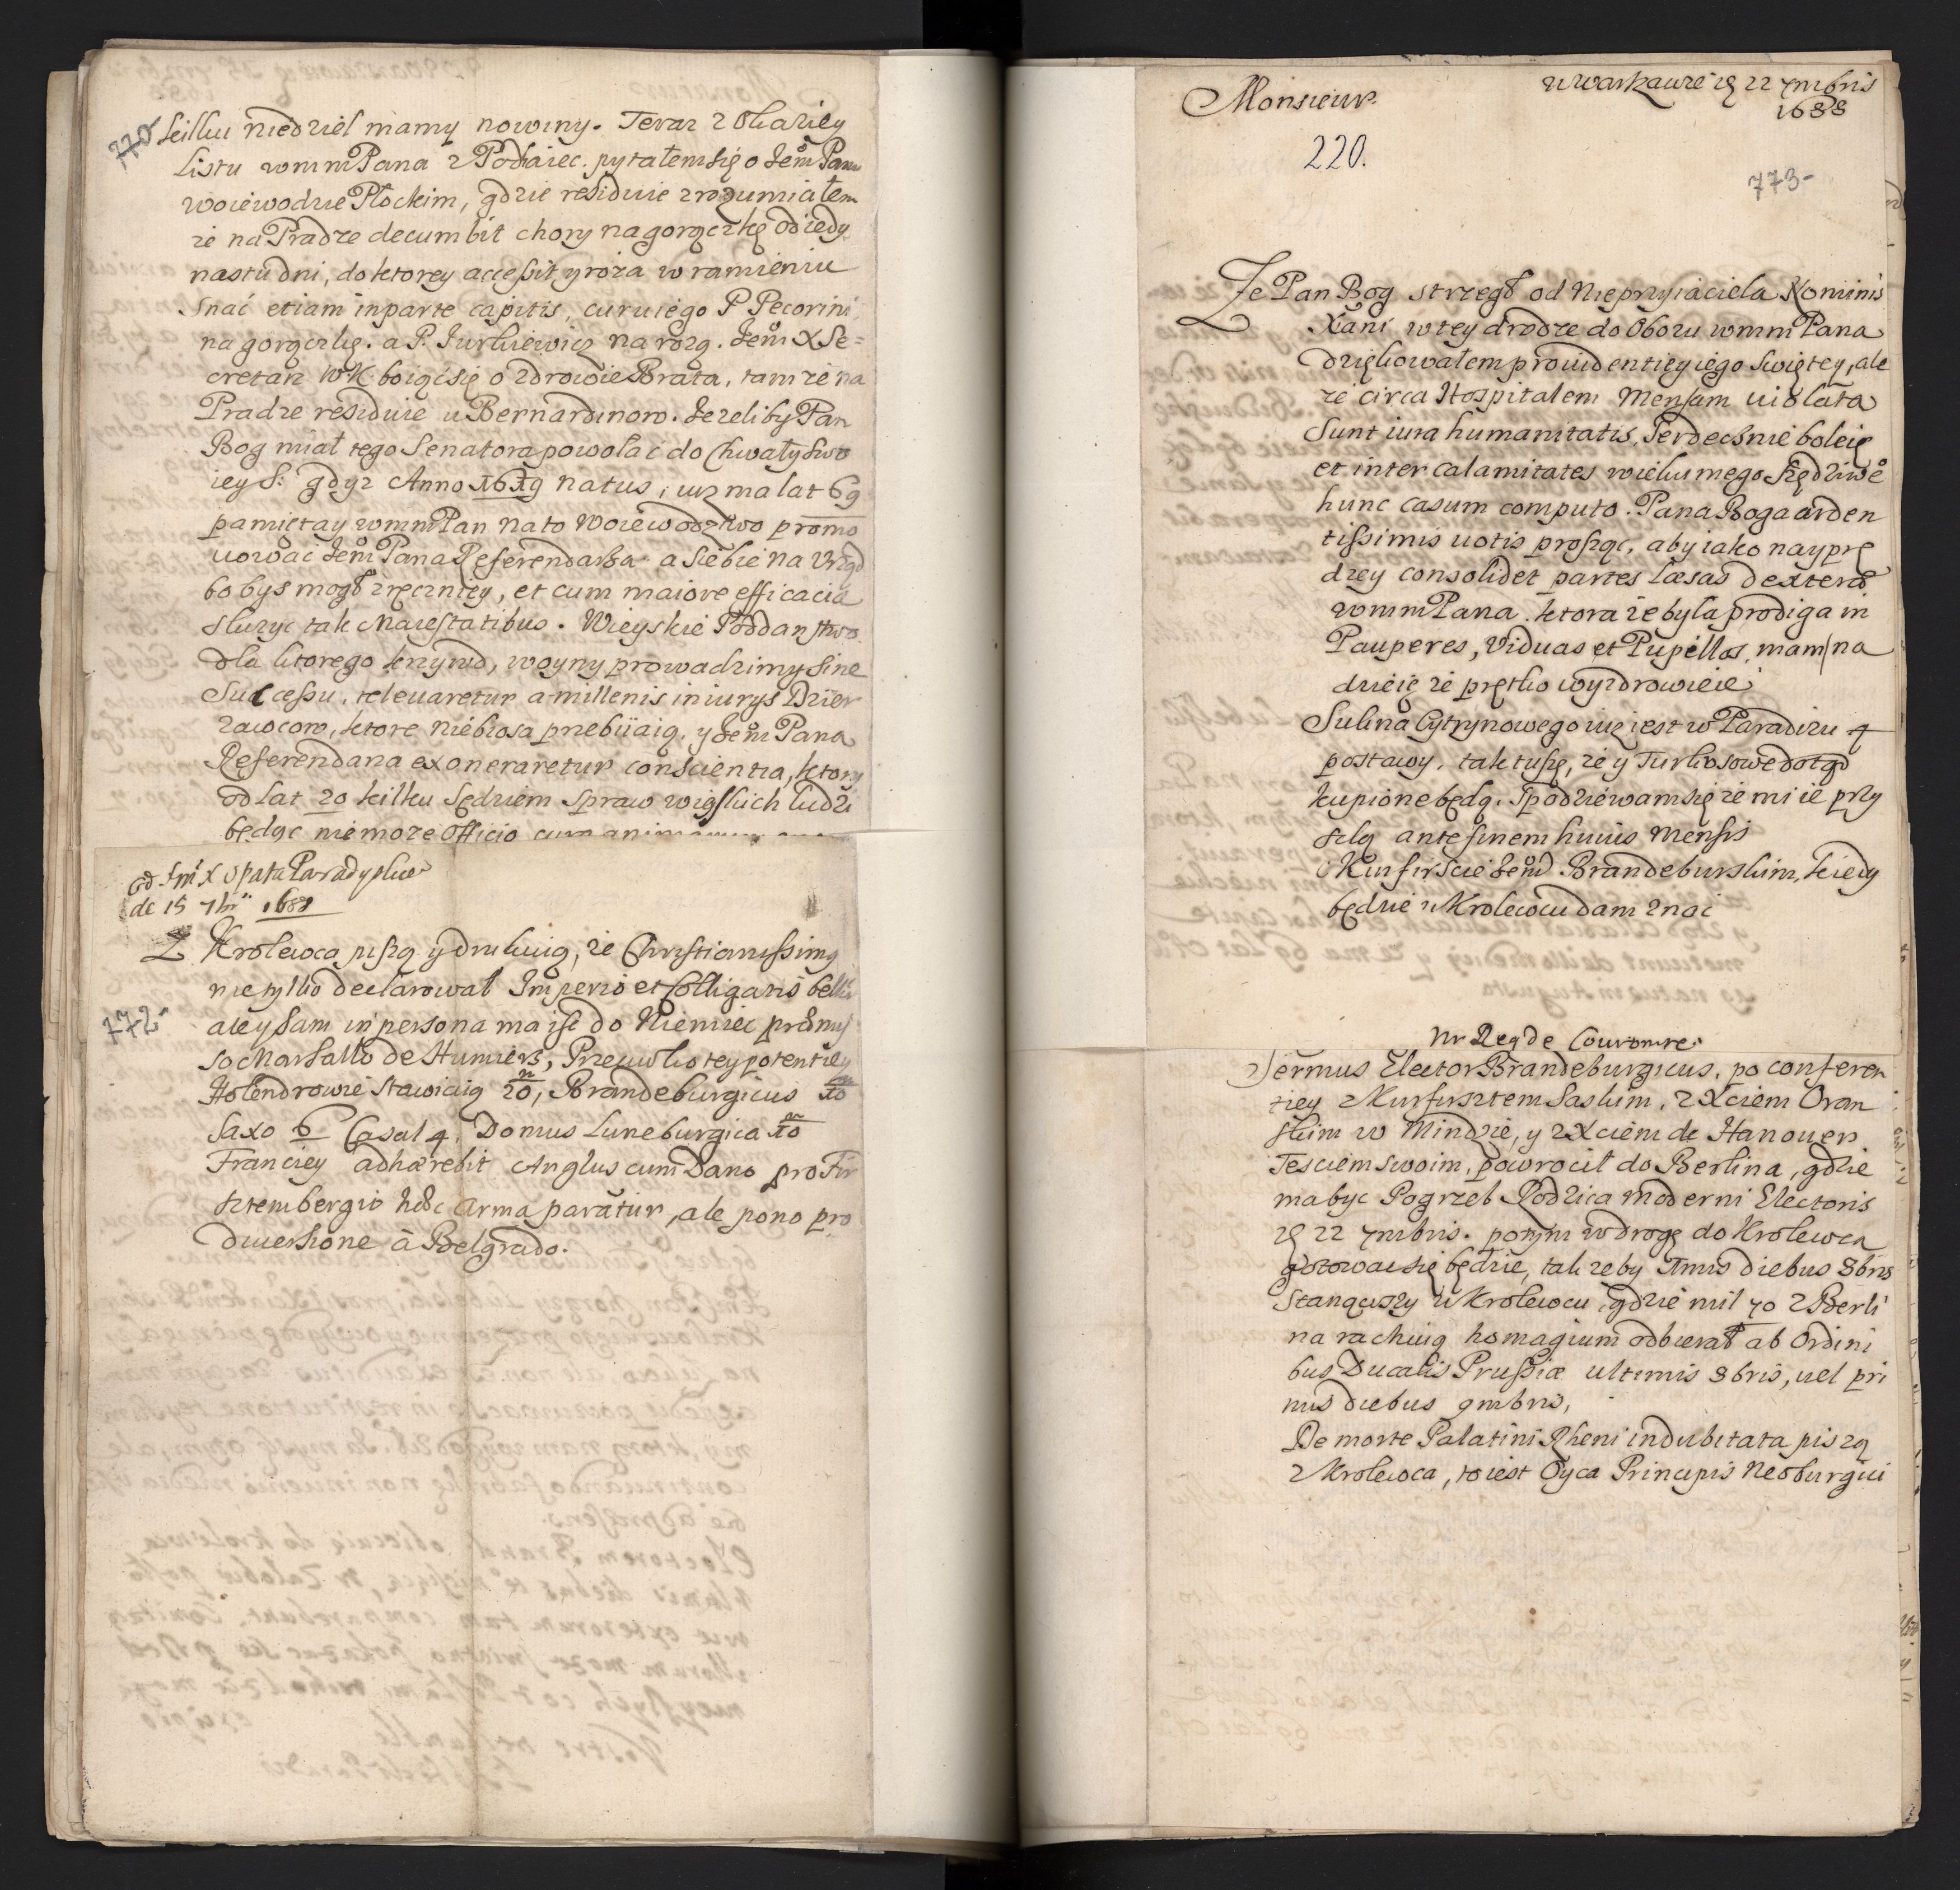 770
kilku niedziel mamy nowiny. Teraz z Okaziey
Listu wmmPana z Podhaiec. pytałem się o Jem Panu
woiewodzie Płockim, gdzie residuie zrozumiałem
że na Pradze decumbit chory na gorączkę od iedy
nastu dni, do ktorey accessit y roża w ramieniu
snać etiam in parte capitis, curuie go P Pecorini
na gorączkę. a P. Jurkiewicz na rożą. Jem X Se=
cretarz WK. boiąc się o zdrowie Brata, tamże na
Pradze residuie u Bernardinow. Jezeliby Pan
Bog miał tego Senatora powołać do Chwały Swo
iey S: gdyż Anno 1619 natus, iuz ma lat 69
pamiętay wmmPan na to Woiewodztwo promo
uować Jem Pana Referendarza a siebie na Urząd
bo bys mogł zręczniey, et cum maiore efficacia
służyć tak Maiestatibus. Wieyskie Poddanstwo
dla ktorego krzywd, woyny prowadzimy sine
Successu, releuaretur a millenis iniurys Dzier
zawcow, ktore niebiosa przebiiaią, y Jem Pana
Referendarza exoneraretur conscientia, ktory
od lat 20 kilku Sędziem Spraw wieyskich ludzi
będąc niemoze Officio cura animarum
od Jm X Opata Paradyskie
de 15 7br 1688
772
Z Krolewca piszą y drukuią, że Christianissimus
nie tylko declarował Imperio et Colligatis bellum
ale y sam in persona ma iść do Niemiec przomys
so Marsallo de Humiers, Przeciwko tey potentiey
Holendrowie stawiaią 20, Brandeburgicus 10
Saxo 6 Casal 4. Domus Luneburgica 10
Franciey adhærebit Anglus cum Dano pro Fir
sztembergio hæc arma parătur, ale pono pro
diuersione à Belgrado.
Monsieur.
w Warszawie 22 7mbris
1688
220.
773
Ze Pan Bog strzegł od Nieprzyiaciela Hominis
Xani w tey drodze do Obozu wmmPana
dziękowałem prouidentiey iego Swiętey, ale
ze circa Hospitalem Mensam uiolata
sunt iura humanitatis, Serdecznie boleię
et inter calamitates wieku mego Sędziwe
hunc casum computo. Pana Boga arden
tissimis uotis prosząc, aby iako nayprę
dzey consolidet partes læsas dextera
wmmPana. ktora że była prodiga in
Pauperes, Viduas et Pupillos, mam na
dzieię że prętko wyzdrowieie
Sukna Cytrynowego iuz iest w Paradizu 4
postawy. tak tuszę, że y Turkosowe do tąd
kupione będą. Spodziewam się że mi ie przy
szlą ante finem huius mensis
O Kurfirscie Jem Brandeburskim, kiedy
będzie w Krolewcu dam znać
Mr Reg de Couronne.
Sermus Elector Brandeburgicus, po conferen
tiey z Kurfirsztem Saskim, z Xciem Oran
skim w Mindzie, y z Xciem de Hanouer
Tesciem swoim, powrocił do Berlina, gdzie
ma byc Pogrzeb Rodzica moderni Electoris
22 7mbris. potym w drogę do Krolewca
gotowac się będzie, tak zeby imis diebus 8bris
stanąwszy w Krolewcu, gdzie mil 70 z Berli
na rachuią homagium odbierał ab Ordini
bus Ducalis Prussiæ ultimis 8bris, uel pri
mis diebus 9mbris,
De morte Palatini Rheni indubitata piszą
z Krolewca, to iest Oyca Principis Neoburgici